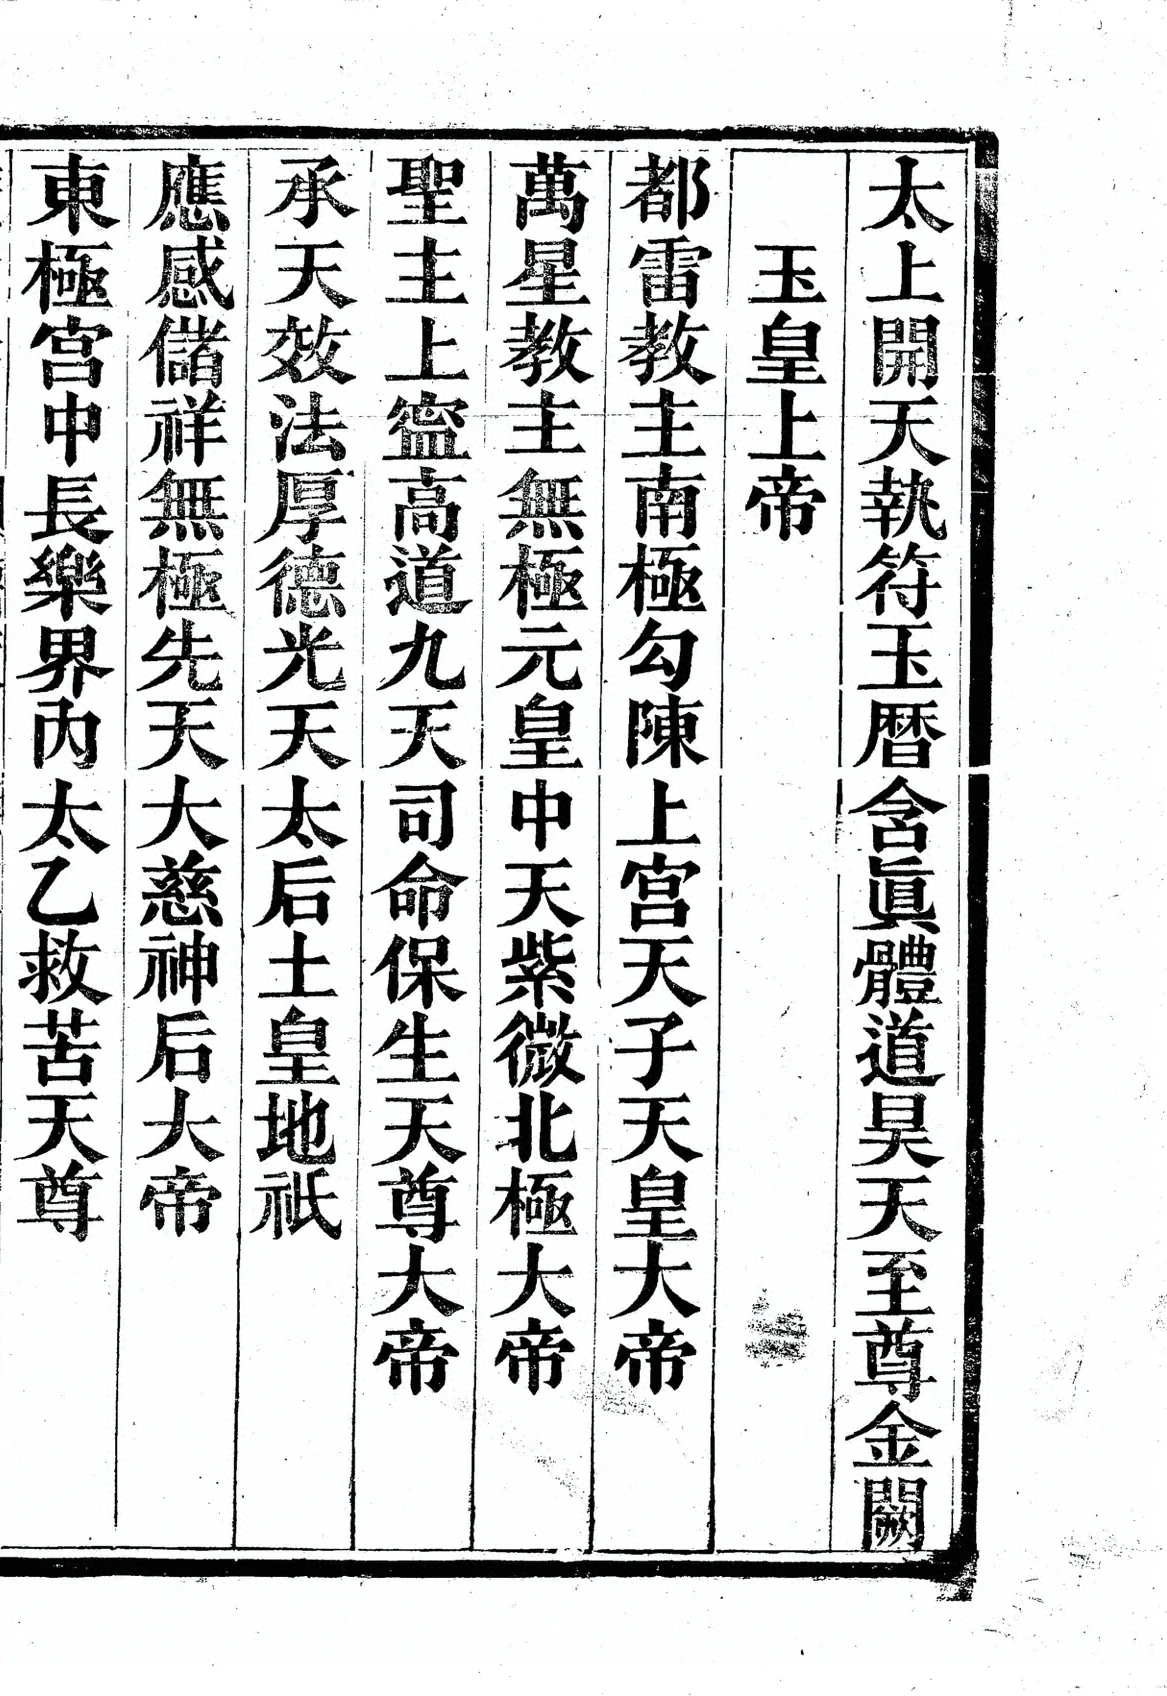 太上開天執符玉暦含眞體道昊天至尊金闕
玉皇上帝
都雷教主南極勾陳上宮天子天皇大帝
萬星教主無極元皇中天紫微北極大帝
聖主上寍高道九天司命保生天尊大帝
承天效法厚德光天太后土皇地祇
應感儲祥無極先天大慈神后大帝
東極宮中長樂界內太乙救苦天尊